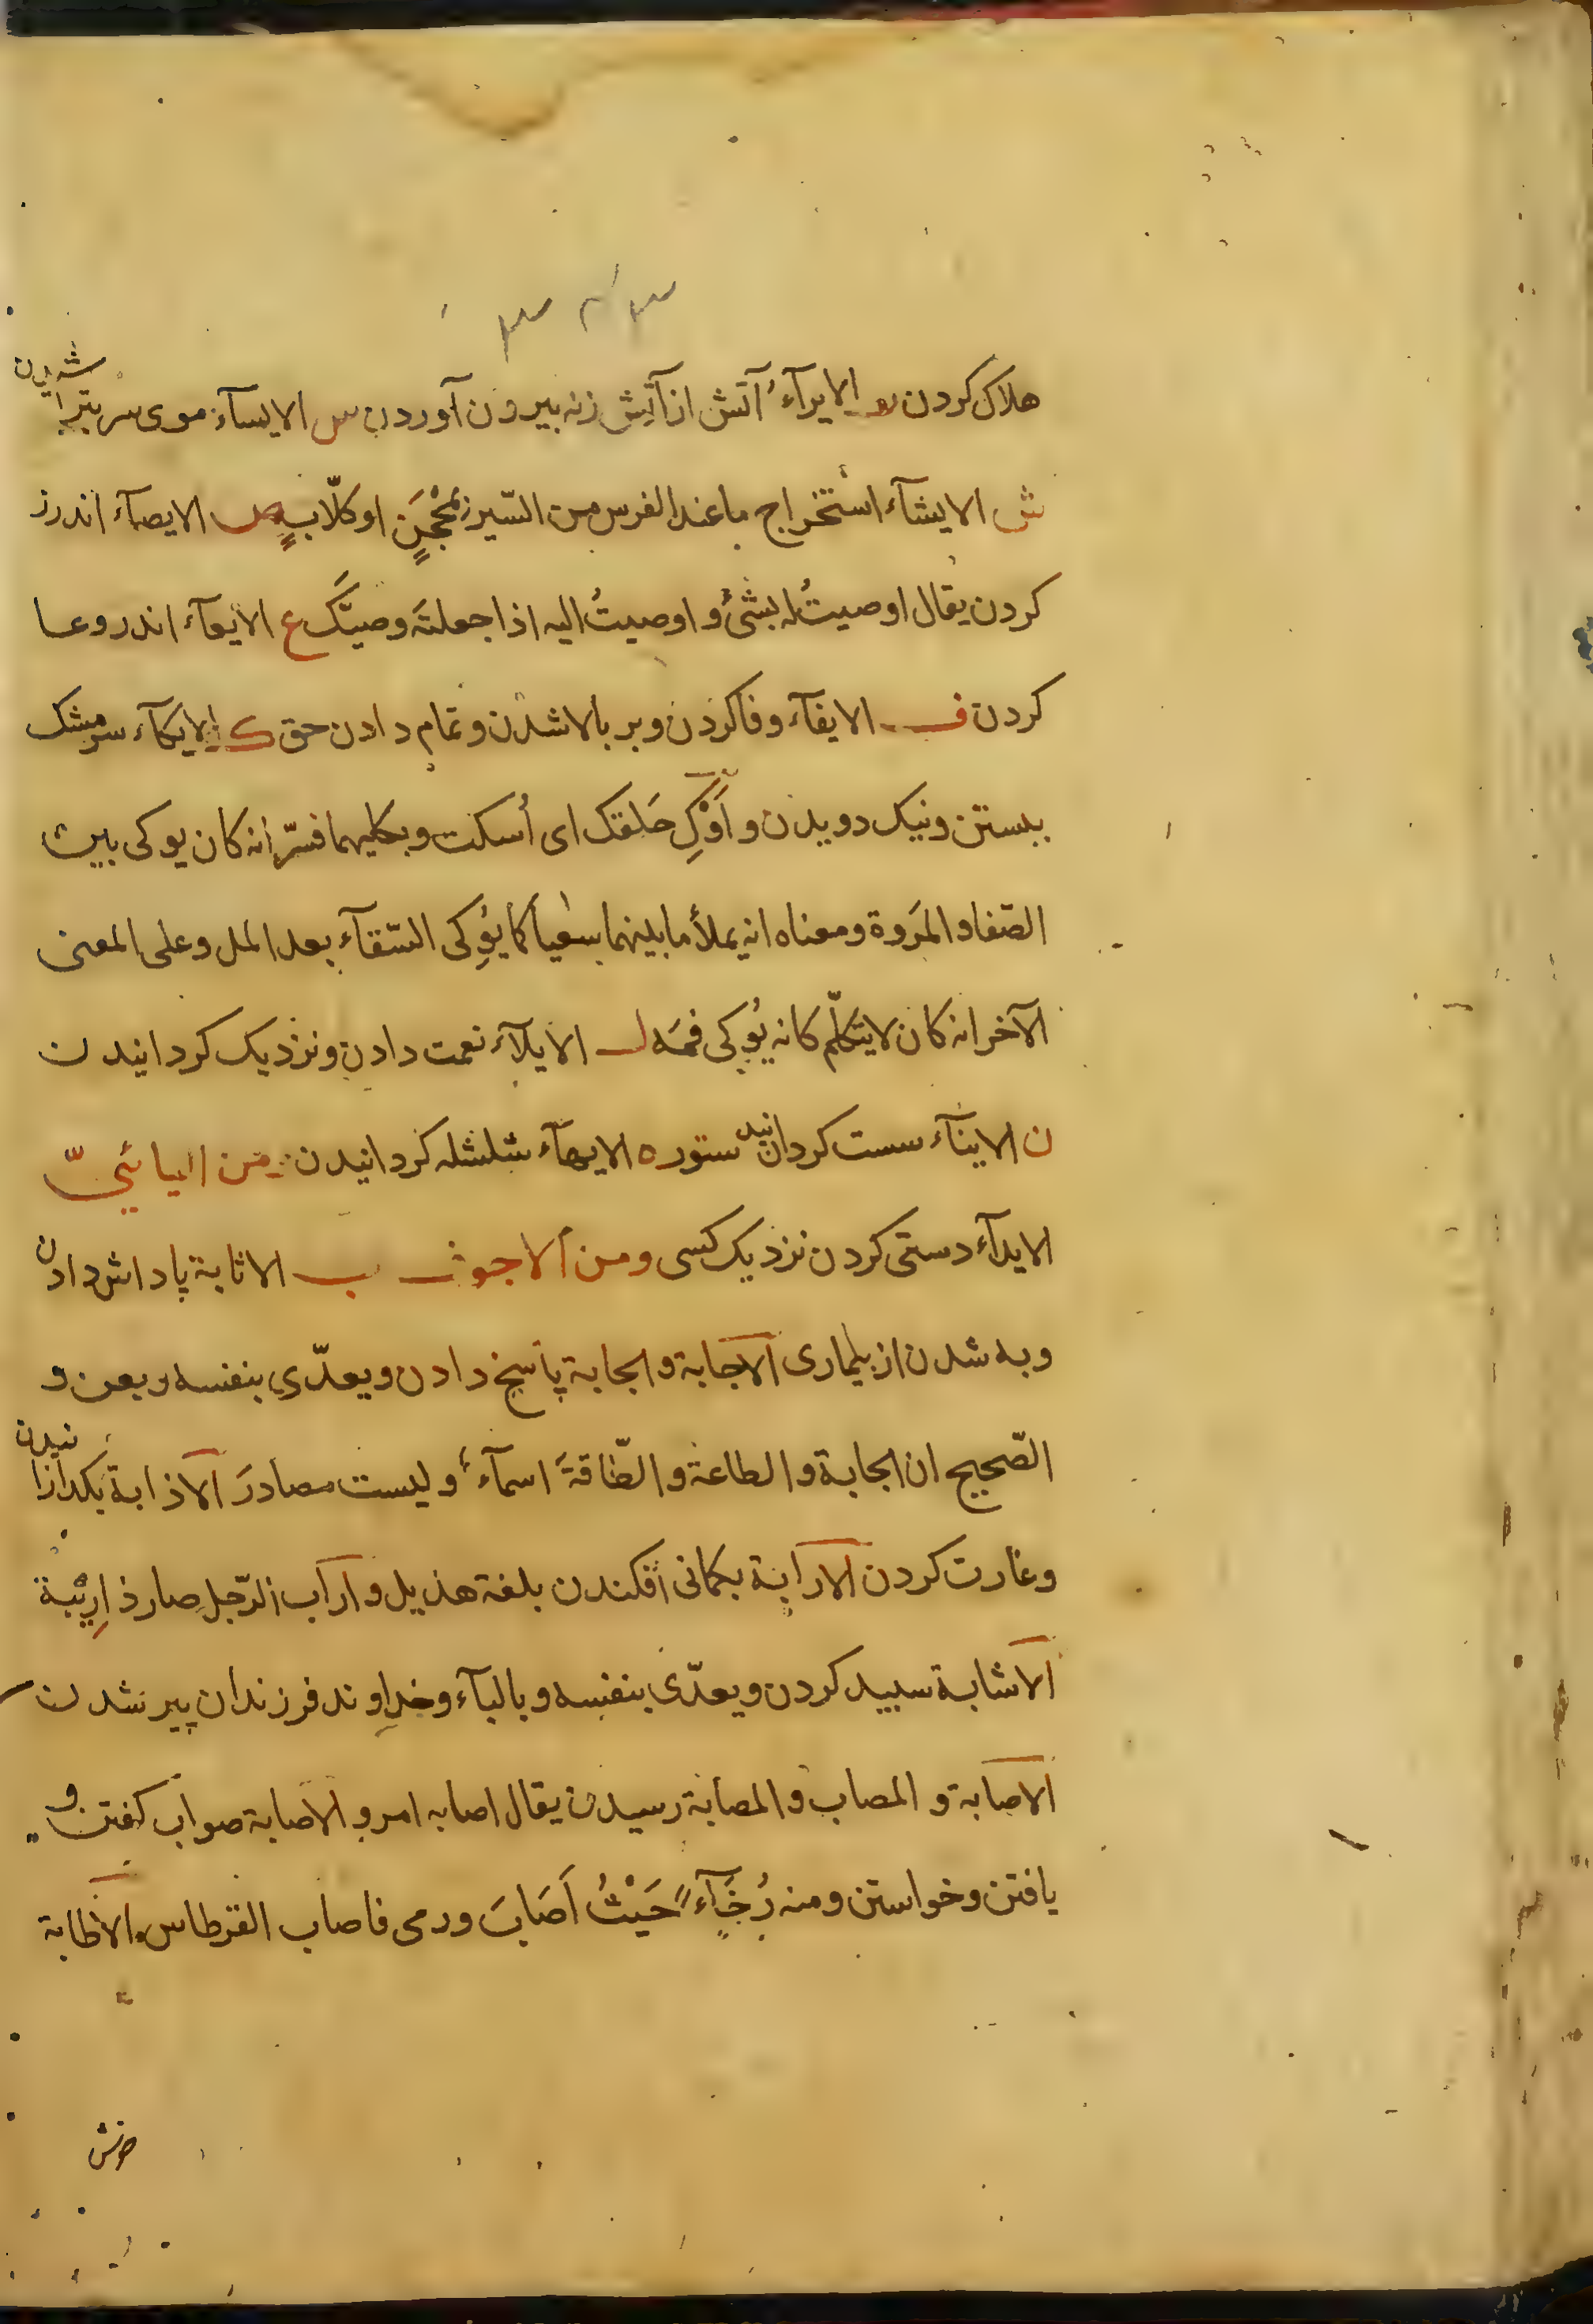 هلاک کردن ر الایرآءُ آتش از آتش زنه بیرون آوردن س الایسآء موی سر بتراشیدن
ش الایشآء استخراج ما عند الفرس من السّیر بمِحْجَنٍ او کلّابٍ ص الایصآء اندرز
کردن یقال اوصیتُ له بشئ و اوصیتُ الیه اذا جعلتَه وصیَّک ع الایعآء اندر وعا
کردن ف الایفآء وفا کردن و بر بالا شدن و تمام دادن حق ک الایکآء سر مشک
ببستن و نیک دویدن و اَوْکِ حَلقک ای اُسکت و بکلیهما فسّر انه کان یوکی بین
الصّفا و المَروة و معناه انه یملأ ما بینهما سعیاً کما یُوکِی السّقآء بعد المل و علی المعنی
الآخر انه کان لایتکلّم کانه یُوکی فمَه ل الایلآء نعمت دادن و نزدیک کردانیدن
ن الاینآء سست کردانیدن ستور ه الایهآء شلشله کردانیدن من الیائیّ
الایدآء دستی کردن نزدیک کسی و من الاجوف ب الاثابة پاداش دادن
و به شدن از بیماری الاجابة و الجابة پاسخ دادن و یعدّی بنفسه و بعن و
الصّحیح ان الجابة و الطاعة و الطّاقةَ اسمآءُ و لیست مصادرَ الاذابة بکدازانیدن
و غارت کردن الارابة بکمانی افکندن بلغة هذیل و اراب الرّجل صار ذا رِیْبة
الاشابة سبید کردن و یعدّی بنفسه و بالبآء و خداوند فرزندان پیر شدن
الاصابة و المصاب و المصابة رسیدن یقال اصابه امر و الاصابة صواب کفتن و
یافتن و خواستن و منه رُخَآءً حَیْثُ اَصَابَ و رمی فاصاب القرطاس الاطابة
خوش